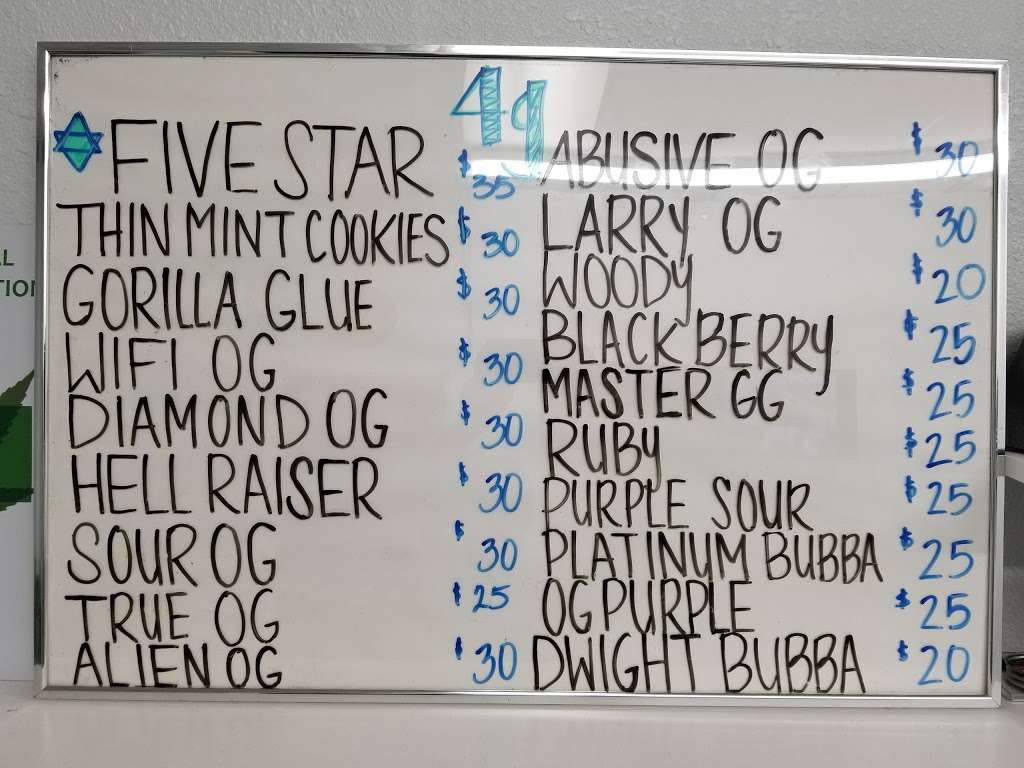 4g
FIVE STAR $35
THIN MINT COOKIES $30
GORILLA GLUE $30
WIFI OG $30
DIAMOND OG $30
HELL RAISER $30
SOUR OG $30
TRUE OG $25
ALIEN OG $30
ABUSIVE OG $30
LARRY OG $30
WOODY $20
BLACK BERRY $25
MASTER GG $25
RUBY $25
PURPLE SOUR $25
PLATINUM BUBBA $25
OG PURPLE $25
DWIGHT BUBBA $20